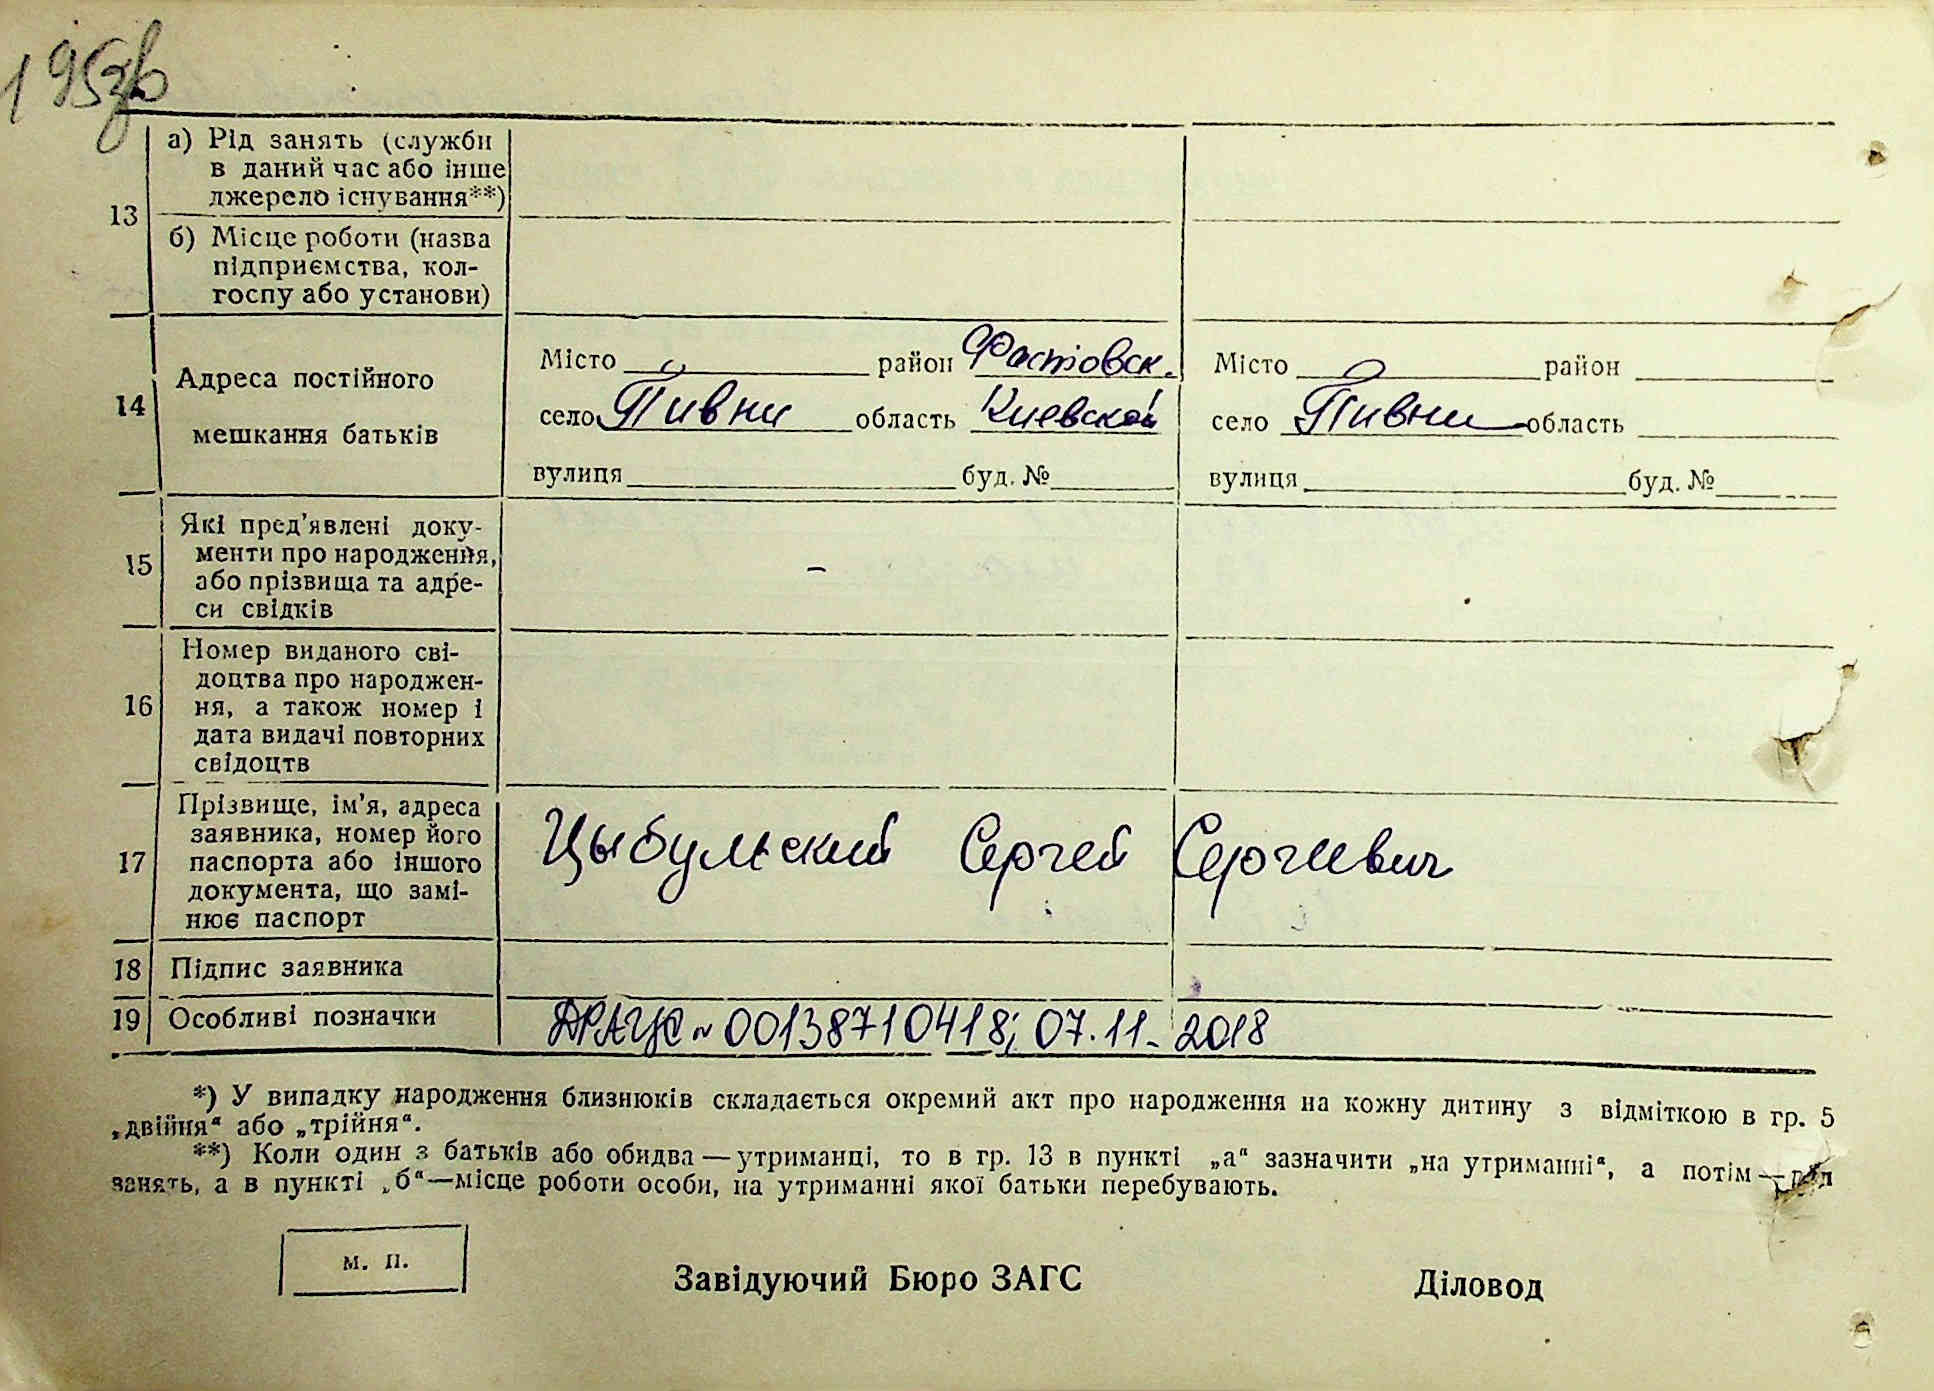 195зв
13
а) Рід занять (служби
в даний час або інше
джерело існування**)
б) Місце роботи (назва
підприємства, кол-
госпу або установи)
14
Адреса постійного
мешкання батьків
Місто район Фастовск.
село Пивни область Киевской
вулиця буд. №
Місто район
село Пивни область
вулиця буд. №
15
Які пред’явлені доку-
менти про народження,
або прізвища та адре-
си свідків
–
16
Номер виданого сві-
доцтва про народжен-
ня, а також номер і
дата видачі повторних
свідоцтв
17
Прізвище, ім’я, адреса
заявника, номер його
паспорта або іншого
документа, що замі-
нює паспорт
Цыбульский Сергей Сергеевич
18 Підпис заявника
19 Особливі позначки
ДРАЦС № 00138710418; 07.11.2018
*) У випадку народження близнюків складається окремий акт про народження на кожну дитину з відміткою в гр. 5
„двійня“ або „трійня“.
**) Коли один з батьків або обидва — утриманці, то в гр. 13 в пункті „а“ зазначити „на утриманні“, а потім — рід
занять, а в пункті „б“—місце роботи особи, на утриманні якої батьки перебувають.
М. П.
Завідуючий Бюро ЗАГС
Діловод